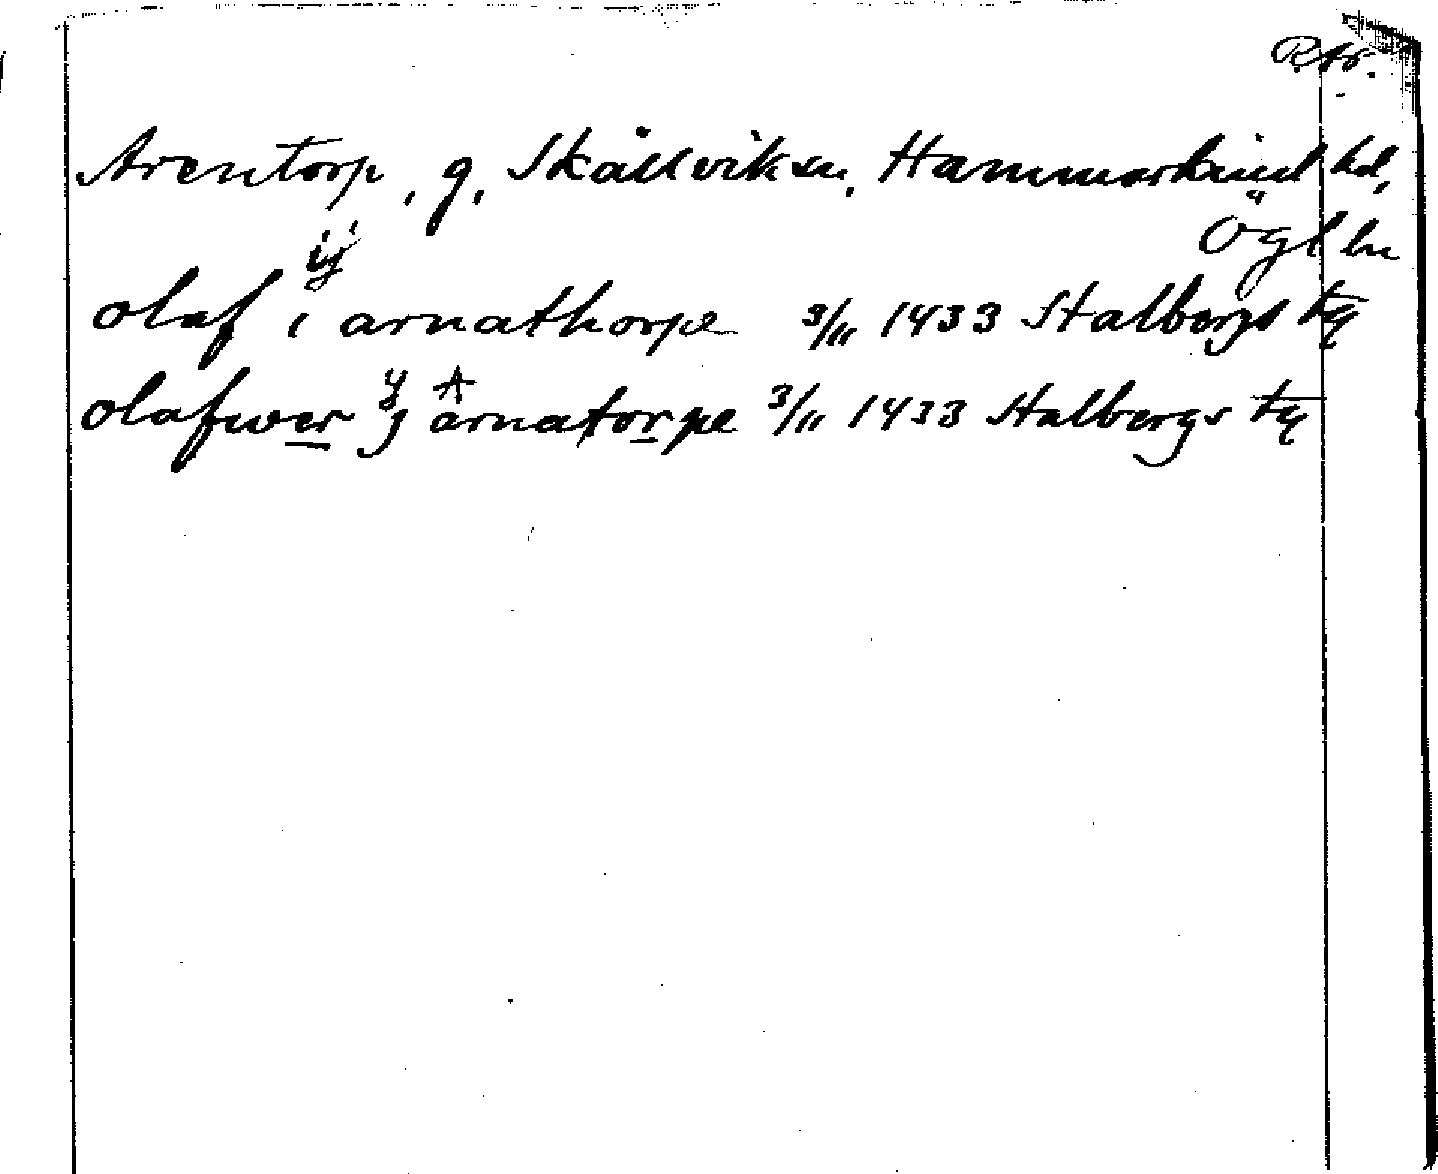 RAr.
Arentorp, g, Skällviks sn, Hammarkind hd,
Ögl ln
ij
olaf i arnathorpe 3/11 1433 Stalbergs
y A
olafwer j arnatorpe 3/11 1433 Stalbergs